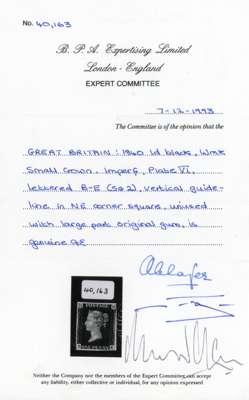 No. 40,163
B. P. A. Expertising Limited
London - England
EXPERT COMMITTEE
7-12-1993
The Committee is of the opinion that the
GREAT BRITAIN: 1840 1d black, Wmk
Small Crown, Imperf, Plate VI,
lettered B-E (SG2), vertical guide-
line in NE corner square, unused
with large part original gum, is
genuine
40,163
POSTAGE
ONE PENNY
Neither the Company nor the members of the Expert Committee can accept
any liability, either collective or individual, for any opinion expressed